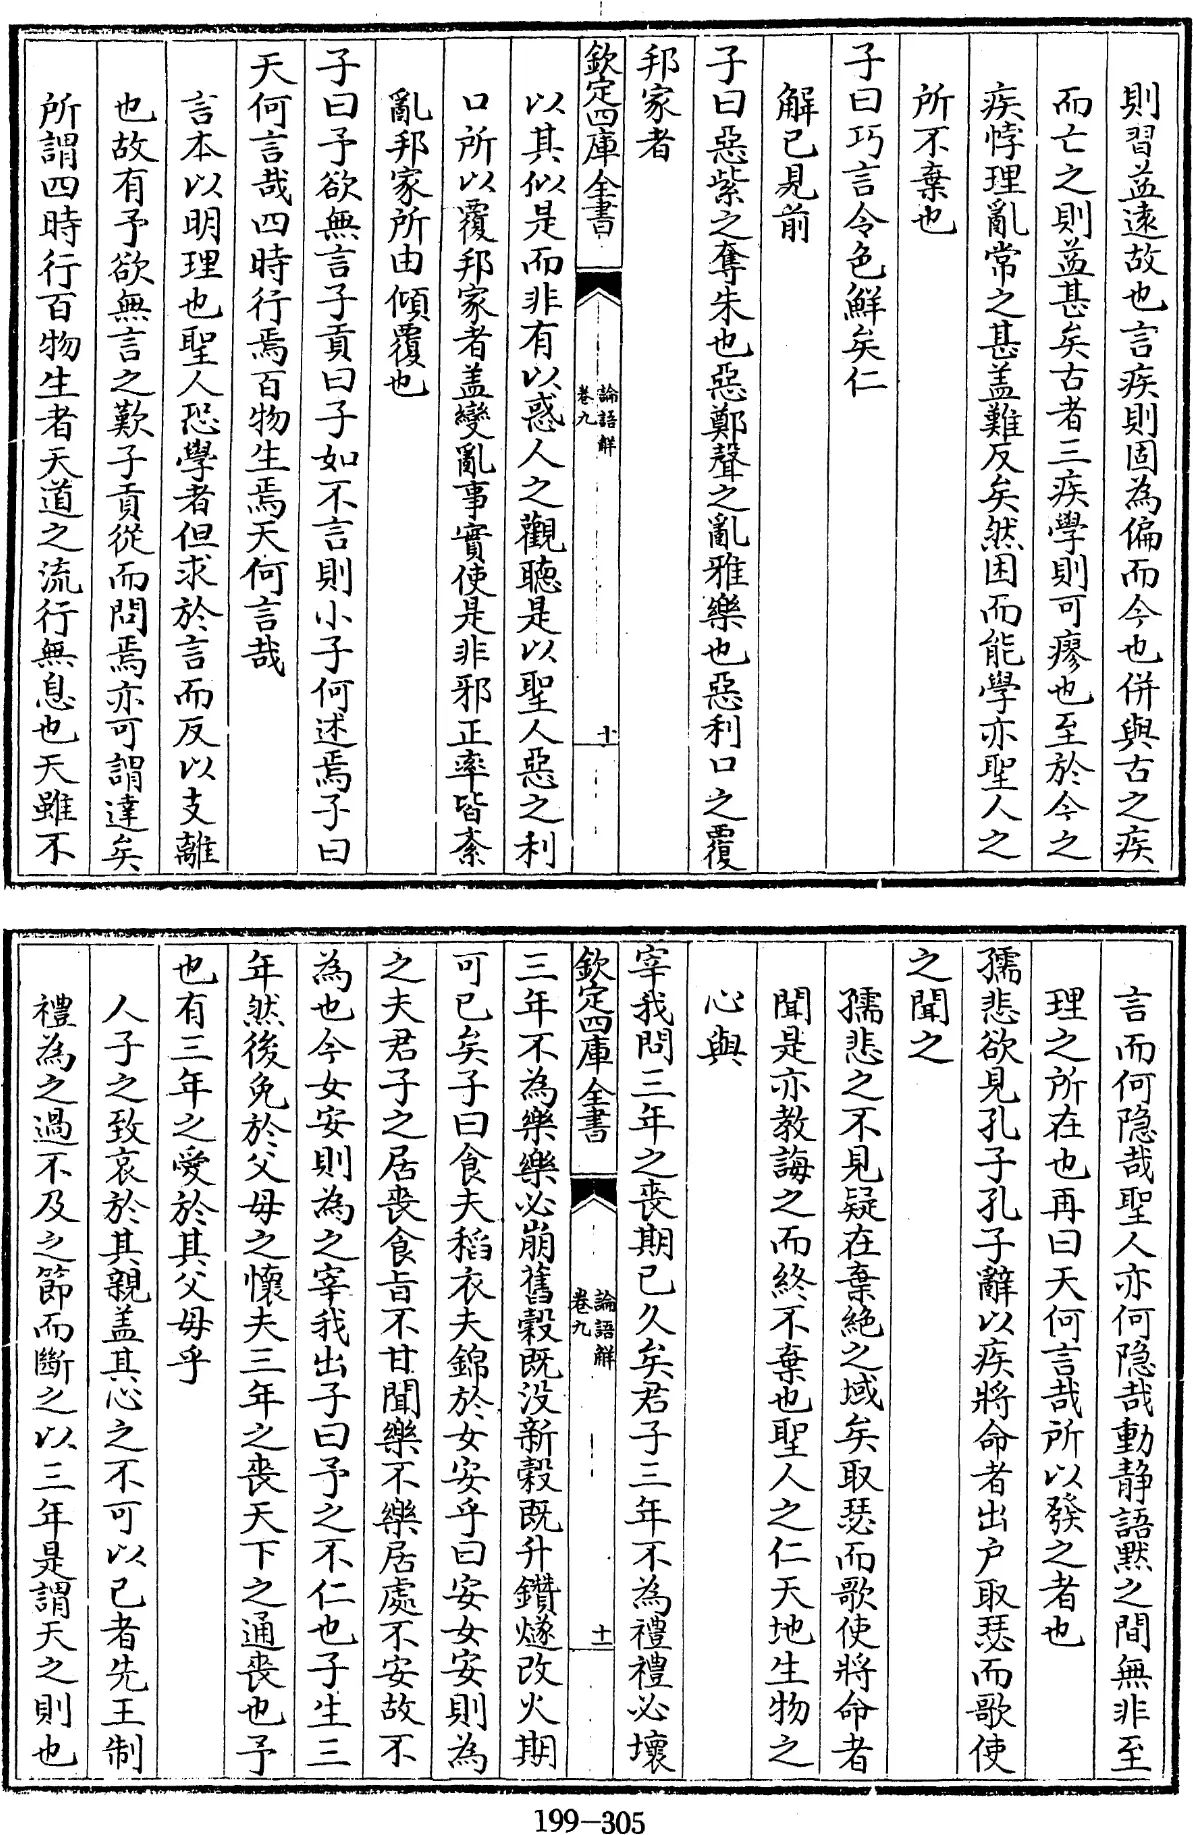 則習益遠故也言疾則固為偏而今也併與古之疾
而亡之則益甚矣古者三疾學則可瘳也至於今之
疾悖理亂常之甚盖難反矣然困而能學亦聖人之
所不棄也
子曰巧言令色鮮矣仁
解已見前
子曰惡紫之奪朱也惡鄭聲之亂雅樂也惡利口之覆
邦家者
欽定四庫全書
論語解
卷九
十
以其似是而非有以惑人之觀聽是以聖人惡之利
口所以覆邦家者盖變亂事實使是非邪正率皆紊
亂邦家所由傾覆也
子曰予欲無言子貢曰子如不言則小子何述焉子曰
天何言哉四時行焉百物生焉天何言哉
言本以明理也聖人恐學者但求於言而反以支離
也故有予欲無言之歎子貢從而問焉亦可謂達矣
所謂四時行百物生者天道之流行無息也天雖不
言而何隐哉聖人亦何隐哉動靜語黙之間無非至
理之所在也再曰天何言哉所以發之者也
孺悲欲見孔子孔子辭以疾將命者出户取瑟而歌使
之聞之
孺悲之不見疑在棄絶之域矣取瑟而歌使將命者
聞是亦教誨之而終不棄也聖人之仁天地生物之
心與
宰我問三年之喪期已久矣君子三年不為禮禮必壞
欽定四庫全書
論語解
卷九
十一
三年不為樂樂必崩舊穀既没新穀既升鑽燧改火期
可已矣子曰食夫稻衣夫錦於女安乎曰安女安則為
之夫君子之居喪食旨不甘聞樂不樂居處不安故不
為也今女安則為之宰我出子曰予之不仁也子生三
年然後免於父母之懷夫三年之喪天下之通喪也予
也有三年之愛於其父母乎
人子之致哀於其親盖其心之不可以已者先王制
禮為之過不及之節而斷之以三年是謂天之則也
199-305